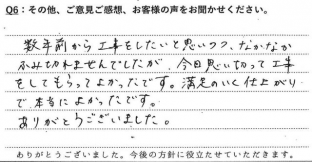 Q6：その他、ご意見ご感想、お客様の声をお聞かせください。
数年前から工事をしたいと思いつつ、なかなか
ふみ切れませんでしたが、今回思い切って工事
をしてもらってよかったです。満足のいく仕上がり
で本当によかったです。
ありがとうございました。
ありがとうございました。今後の方針に役立たせていただきます。